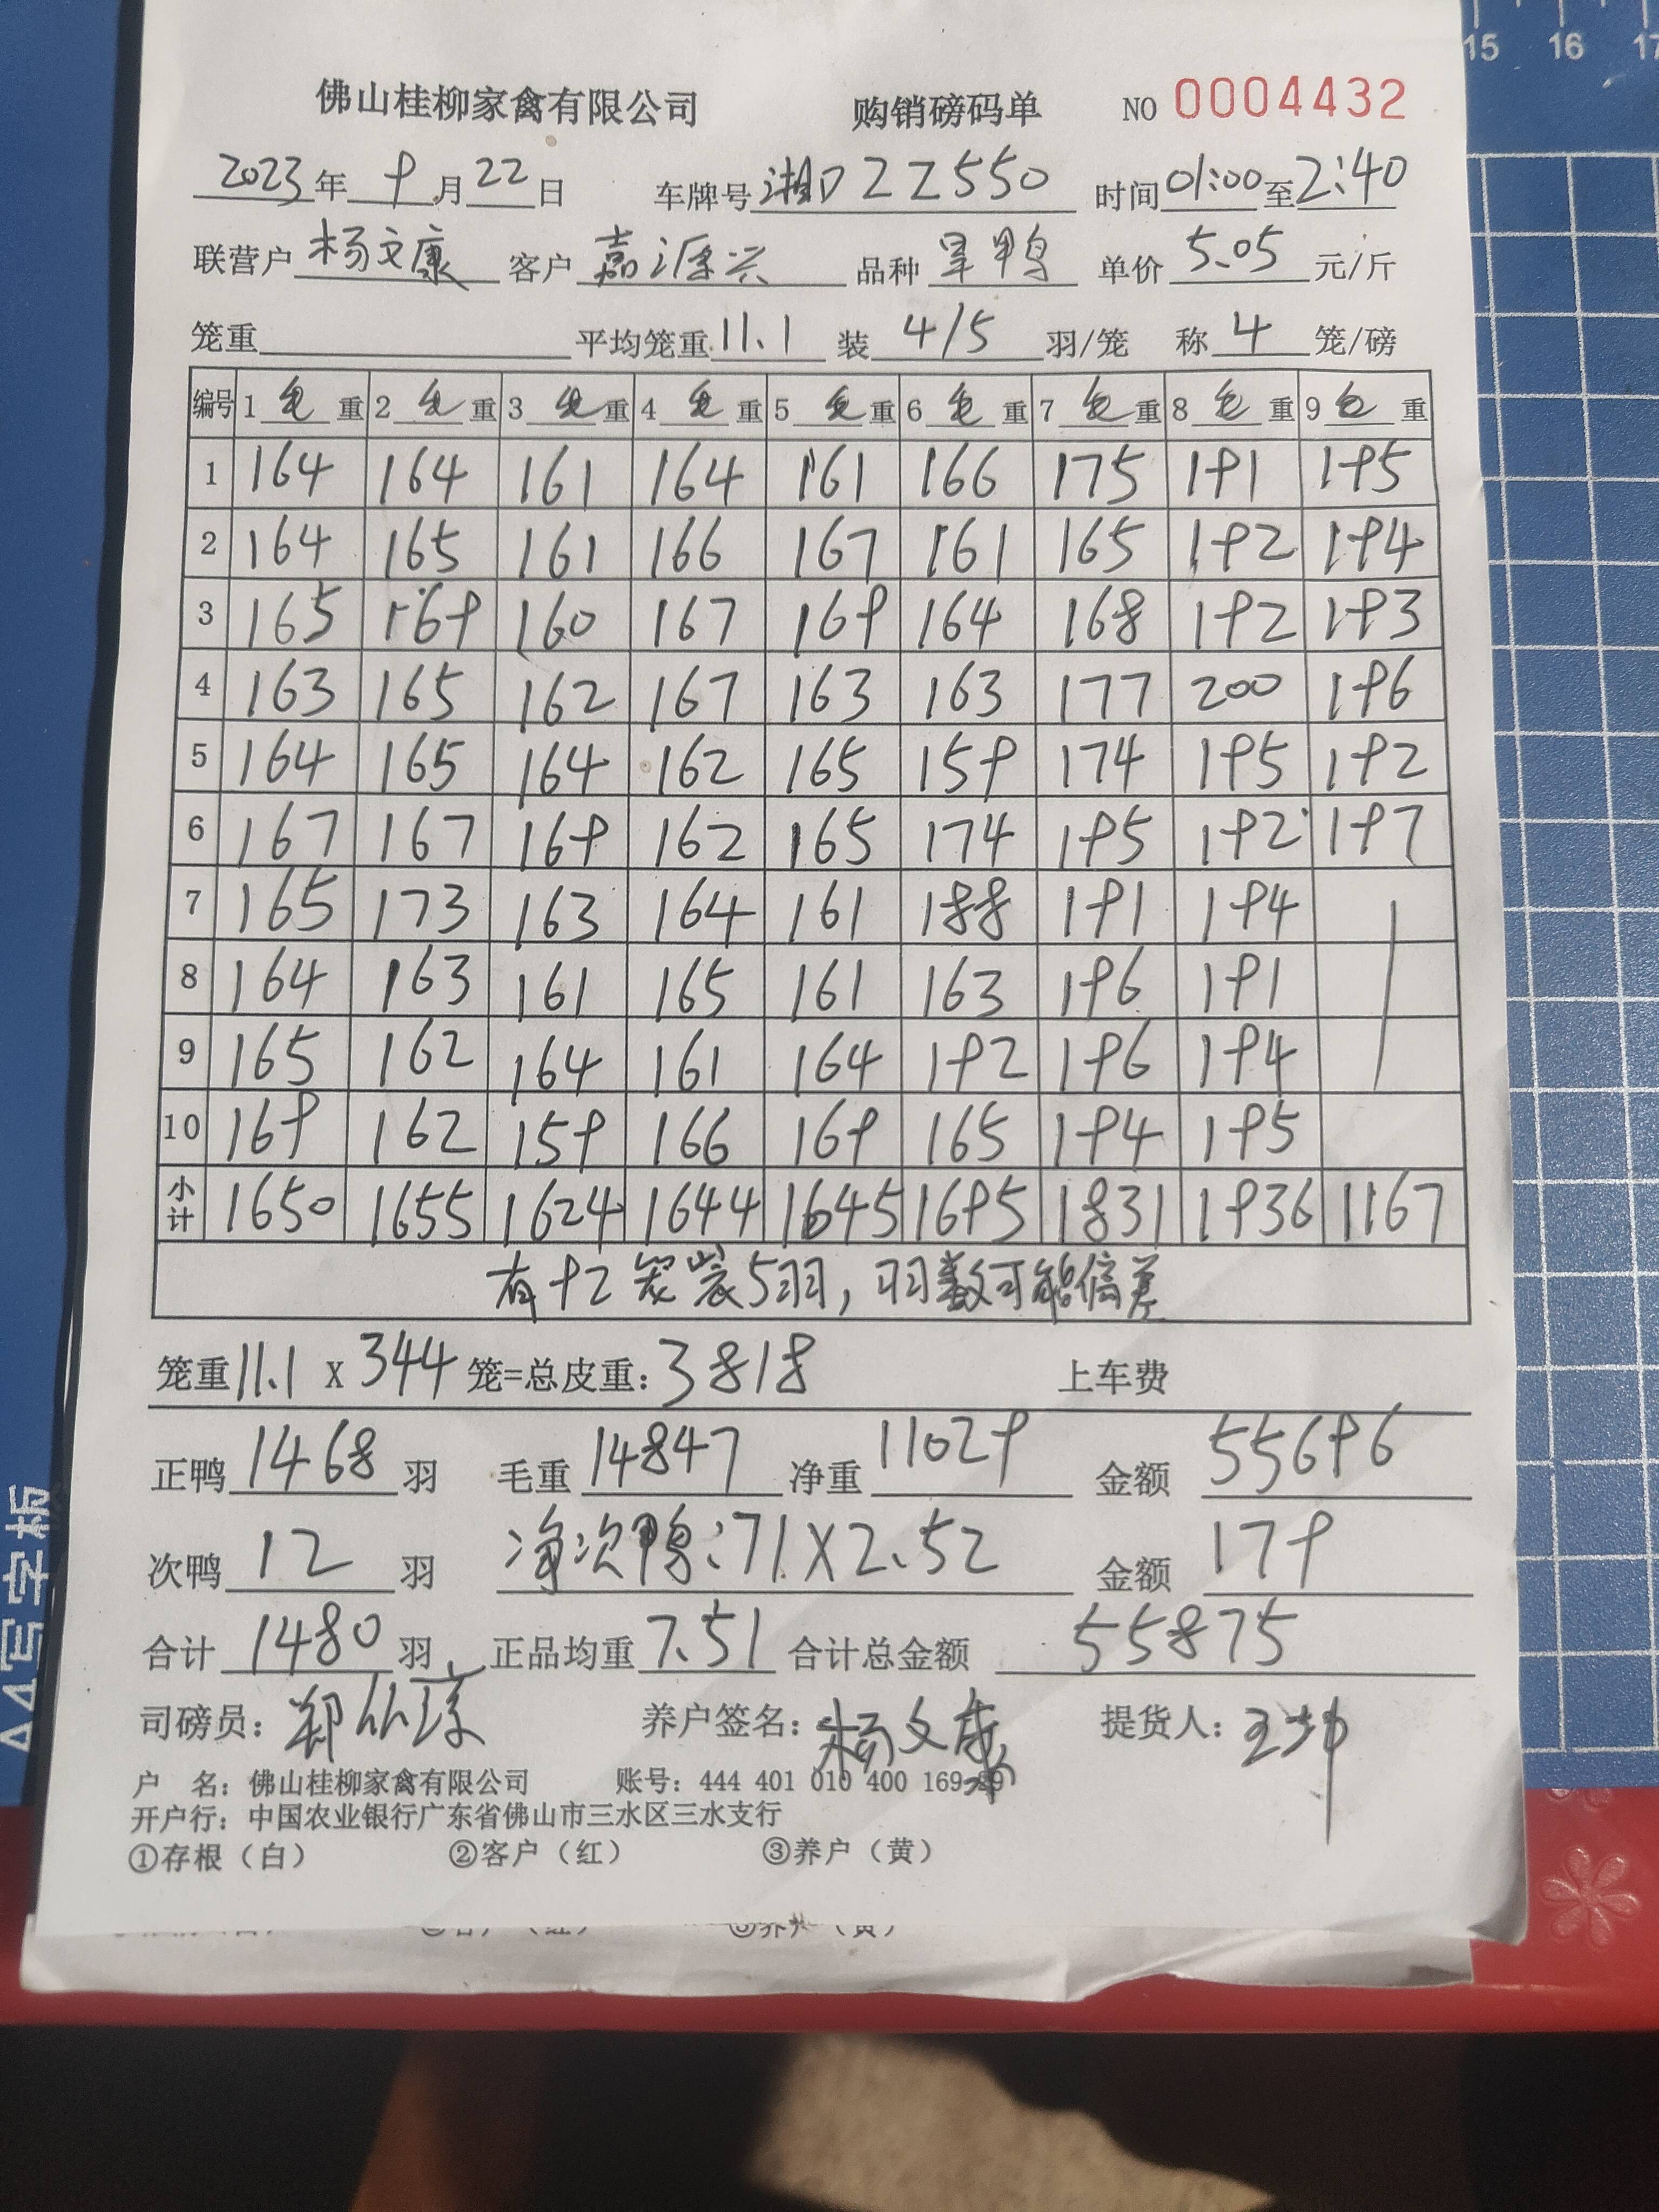 15 16 17
佛山桂柳家禽有限公司 购销磅码单 NO 0004432
2023年 9月22日 车牌号 湘DZZ550 时间01:00至2:40
联营户 杨文康 客户 嘉源兴 品种 旱鸭 单价 5.05 元/斤
笼重 平均笼重 11.1 装 4/5 羽/笼 称 4 笼/磅
编号 1 毛 重 2 毛 重 3 毛 重 4 毛 重 5 毛 重 6 毛 重 7 毛 重 8 毛 重 9 毛 重
1 164 164 161 164 161 166 175 191 195
2 164 165 161 166 167 161 165 192 194
3 165 169 160 167 169 164 168 192 193
4 163 165 162 167 163 163 177 200 196
5 164 165 164 162 165 159 174 195 192
6 167 167 169 162 165 174 195 192 197
7 165 173 163 164 161 188 191 194
8 164 163 161 165 161 163 196 191
9 165 162 164 161 164 192 196 194
10 169 162 159 166 169 165 194 195
小计 1650 1655 1624 1644 1645 1695 1831 1936 1167
有92笼装5羽，羽数可能偏差
笼重 11.1 X 344 笼=总皮重：3818 上车费
正鸭 1468 羽 毛重 14847 净重 11029 金额 55696
次鸭 12 羽 净次鸭：71X2.52 金额 179
合计 1480 羽 正品均重 7.51 合计总金额 55875
司磅员：郑 养户签名：杨文康 提货人：王坤
户 名：佛山桂柳家禽有限公司 账号：444 401 010 400 169 89
开户行：中国农业银行广东省佛山市三水区三水支行
①存根（白） ②客户（红） ③养户（黄）
A4写字板